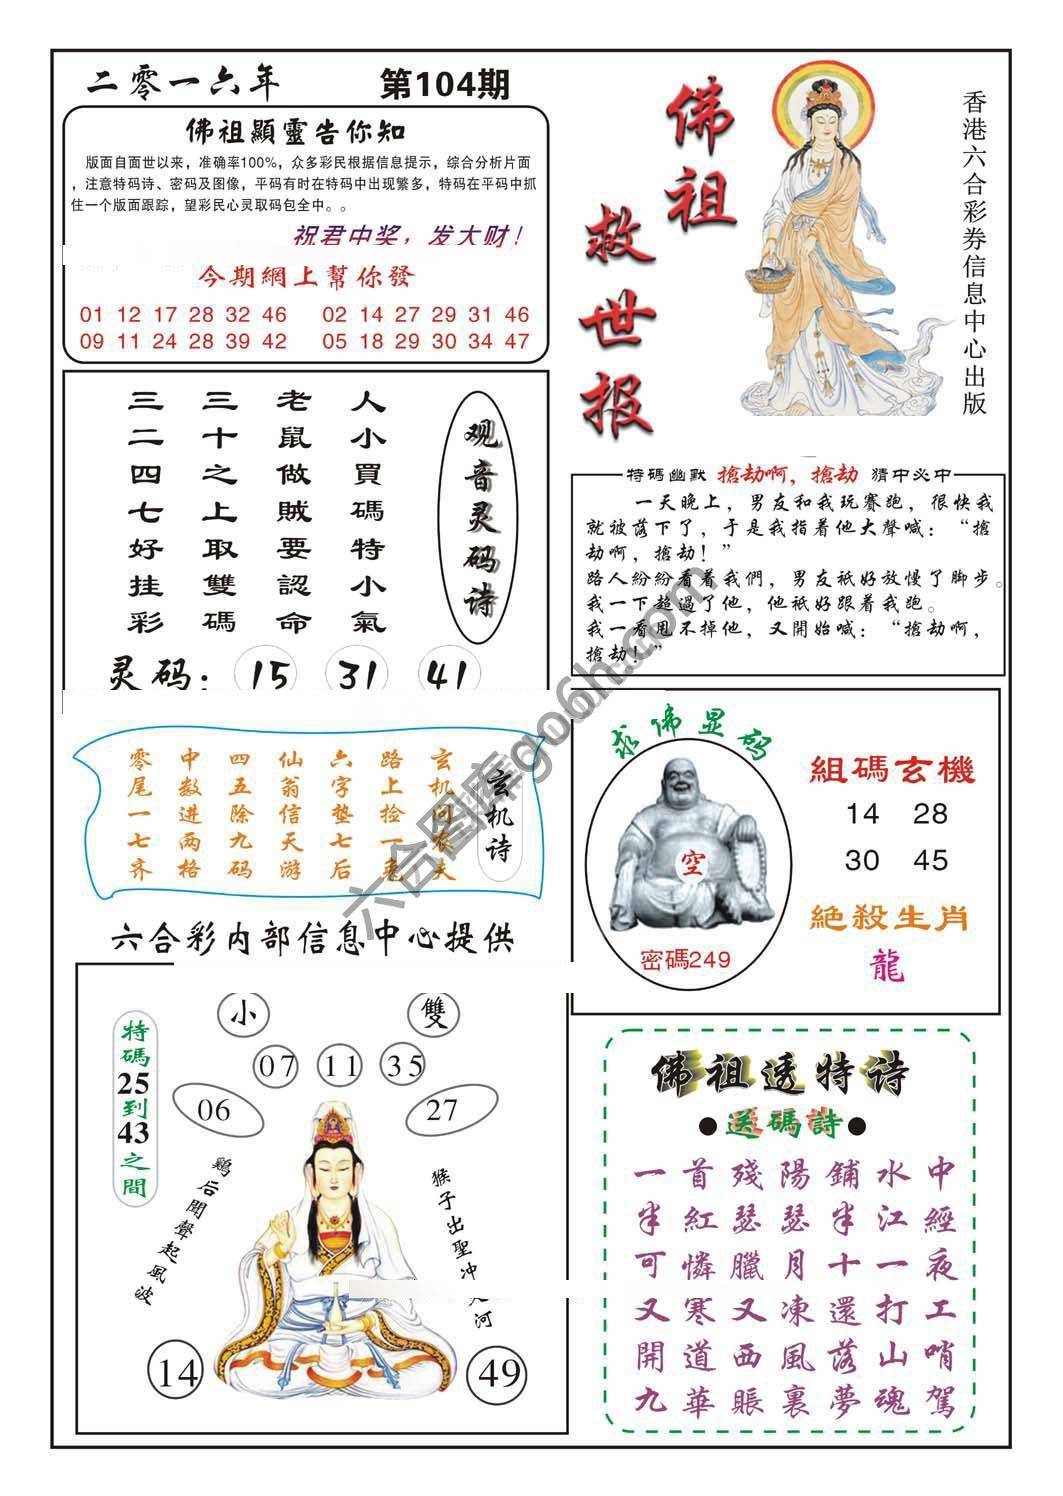 二零一六年
第104期
佛祖顯靈告你知
版面自面世以来，准确率100%，众多彩民根据信息提示，综合分析片面
，注意特码诗、密码及图像，平码有时在特码中出现繁多，特码在平码中抓
住一个版面跟踪，望彩民心灵取码包全中。。
祝君中奖，发大财！
今期網上幫你發
01 12 17 28 32 46
02 14 27 29 31 46
09 11 24 28 39 42
05 18 29 30 34 47
佛祖
救世报
香港六合彩券信息中心出版
观音灵码诗
人小買碼特小氣
老鼠做賊要認命
三十之上取雙碼
三二四七好挂彩
灵码：
15
31
41
特碼幽默
搶劫啊，搶劫
猜中必中
一天晚上，男友和我玩賽跑，很快我
就被落下了，于是我指着他大聲喊：“搶
劫啊，搶劫！”
路人紛紛看着我們，男友祇好放慢了脚步。
我一下超過了他，他祇好跟着我跑。
我一看甩不掉他，又開始喊：“搶劫啊，
搶劫！”
玄机诗
玄机问农夫
路上捡一兔
六字垫七后
仙翁信天游
四五除九码
中数进两格
零尾一七齐
求佛显码
空
密碼249
組碼玄機
14 28
30 45
絕殺生肖
龍
六合彩内部信息中心提供
小
雙
07
11
35
06
27
特碼25到43之間
鷄后聞聲起風波
猴子出聖冲
河
14
49
佛祖透特诗
●送碼詩●
一首殘陽鋪水中
半紅瑟瑟半江經
可憐臘月十一夜
又寒又凍還打工
開道西風落山哨
九華賬裏夢魂駕
六合图库go6h.com